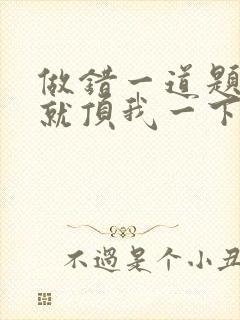 做错一道题
就頂我一下
不過是个小丑